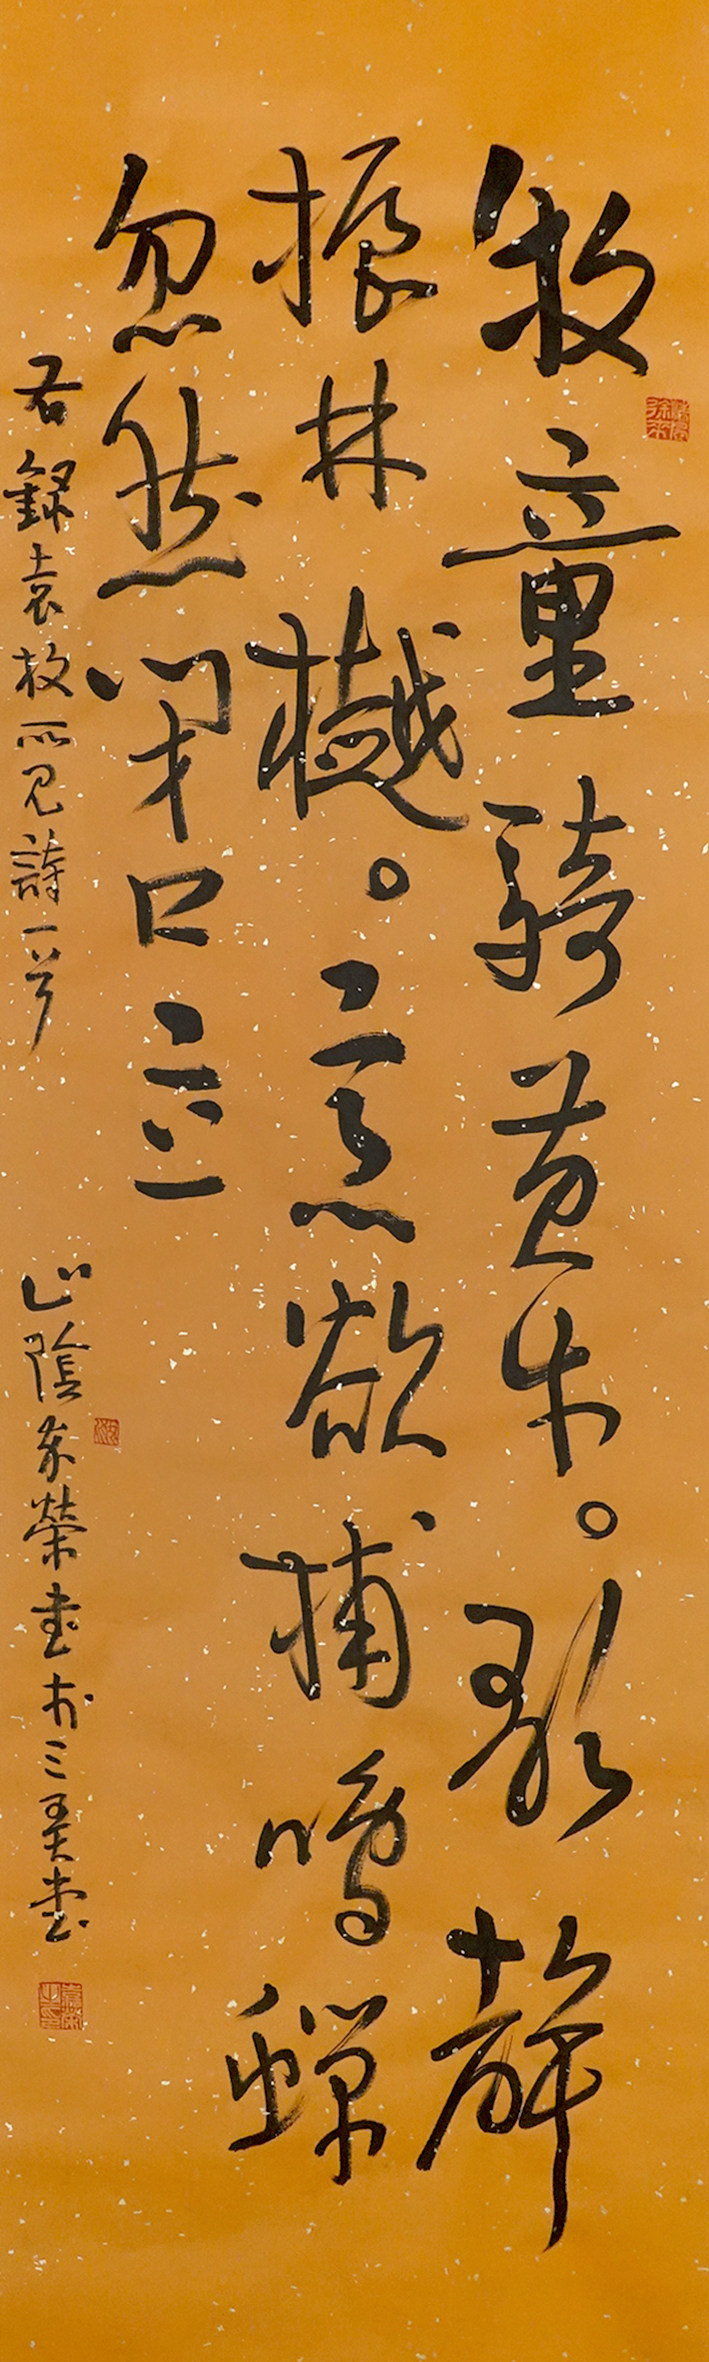 牧童騎黄牛。歌聲
振林樾。意欲捕鳴蟬
忽然閉口立
右録袁枚所見詩一首
山陰東榮書於三美堂